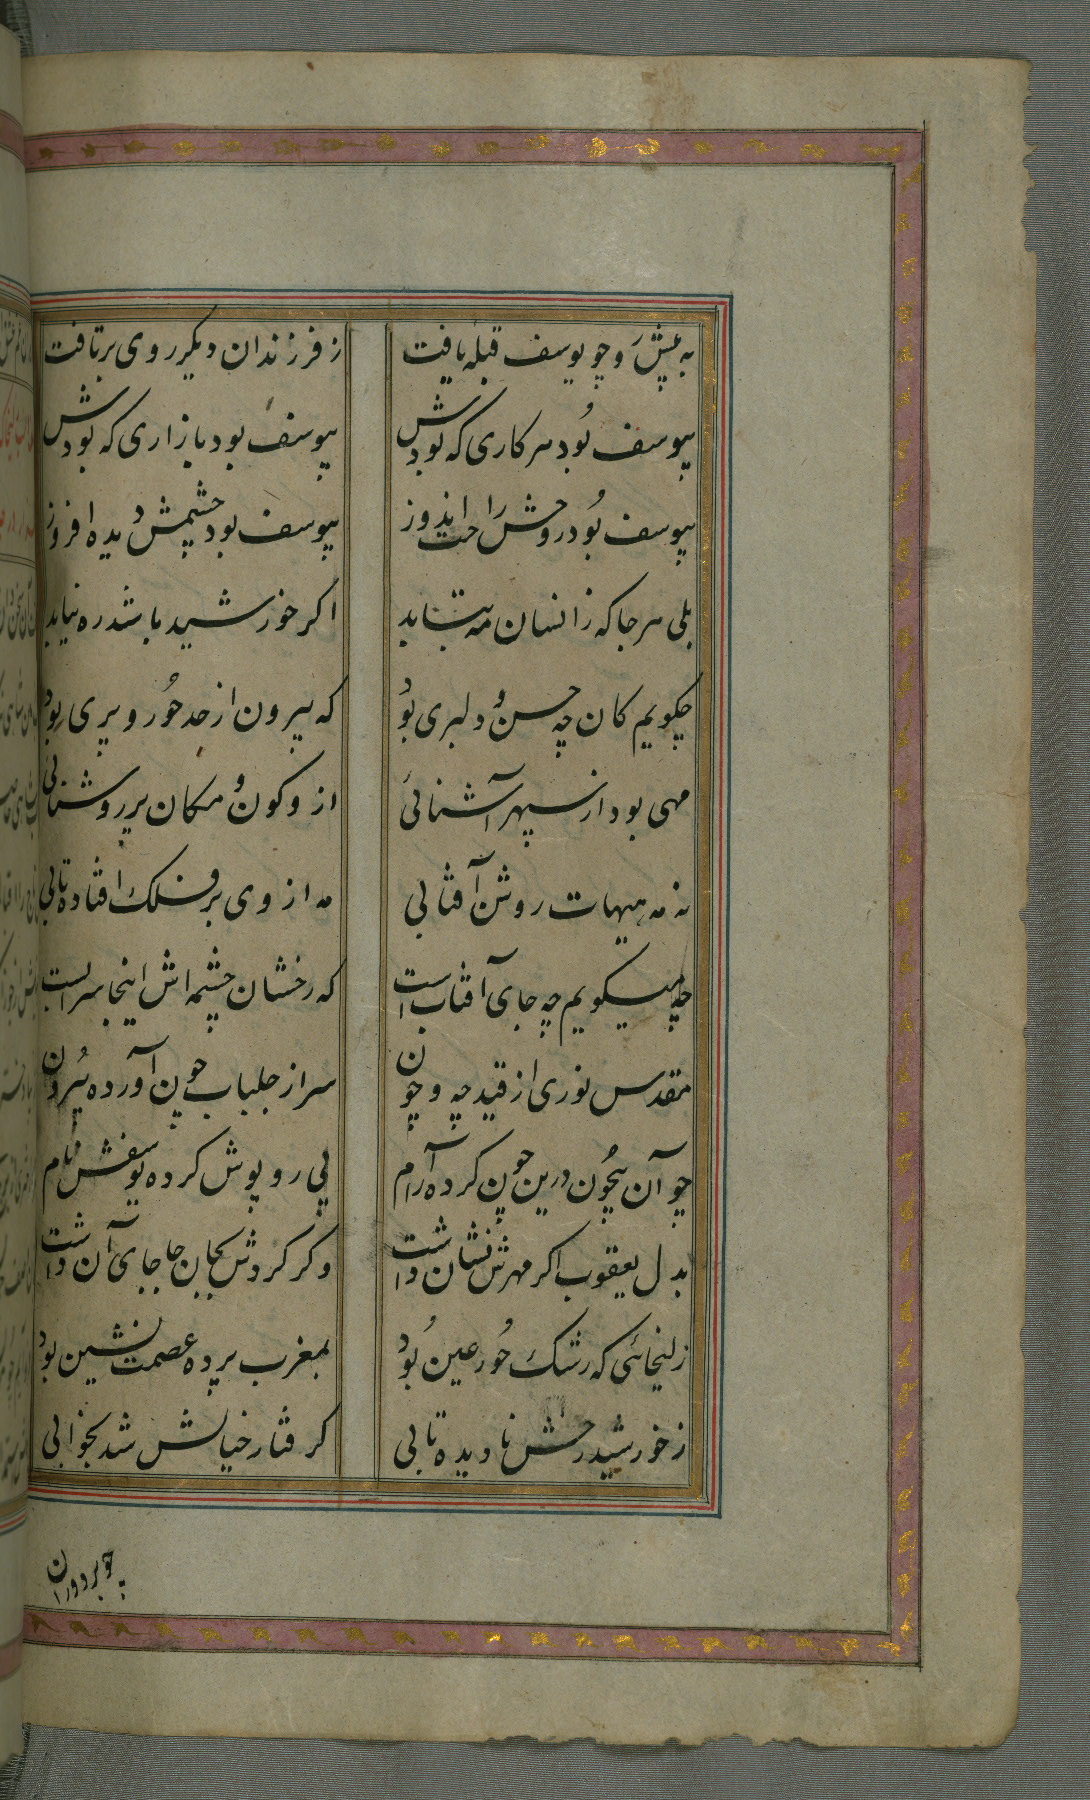 به پیش رو چو یوسف قبله یافت
ز فرزندان دیکر روی برتافت
بیوسف بود هر کاری که بودش
بیوسف بود بازاری که بودش
بیوسف بود روحش راحت اندوز
بیوسف بود چشمش دیده افروز
بلی هر جا کز انسان مه بتابد
اکر خورشید باشد ره نیابد
چکویم کان چه حسن و دلبری بود
که بیرون از حد حور و پری بود
مهی بود از سپهر آشنائی
ازو کون و مکان پر روشنائی
نه مه هیهات روشن آفتابی
مه از وی بر فلک افتاده تابی
چه میکویم چه جای آفتاب است
که رخشان چشمه اش اینجا سراب است
مقدس نوری از قید چه و چون
سر از جلباب چون آورده بیرون
چو آن بیچون درین چون کرده آرام
پی روپوش کرده یوسفش نام
بدل یعقوب اکر مهرش نشان داشت
وکر کردش بجان جا جای آن داشت
زلیخائی که رشک حور عین بود
بمغرب پرده عصمت نشین بود
ز خورشید رخش نادیده تابی
کرفتار خیالش شد بخوابی
چو بر دوران